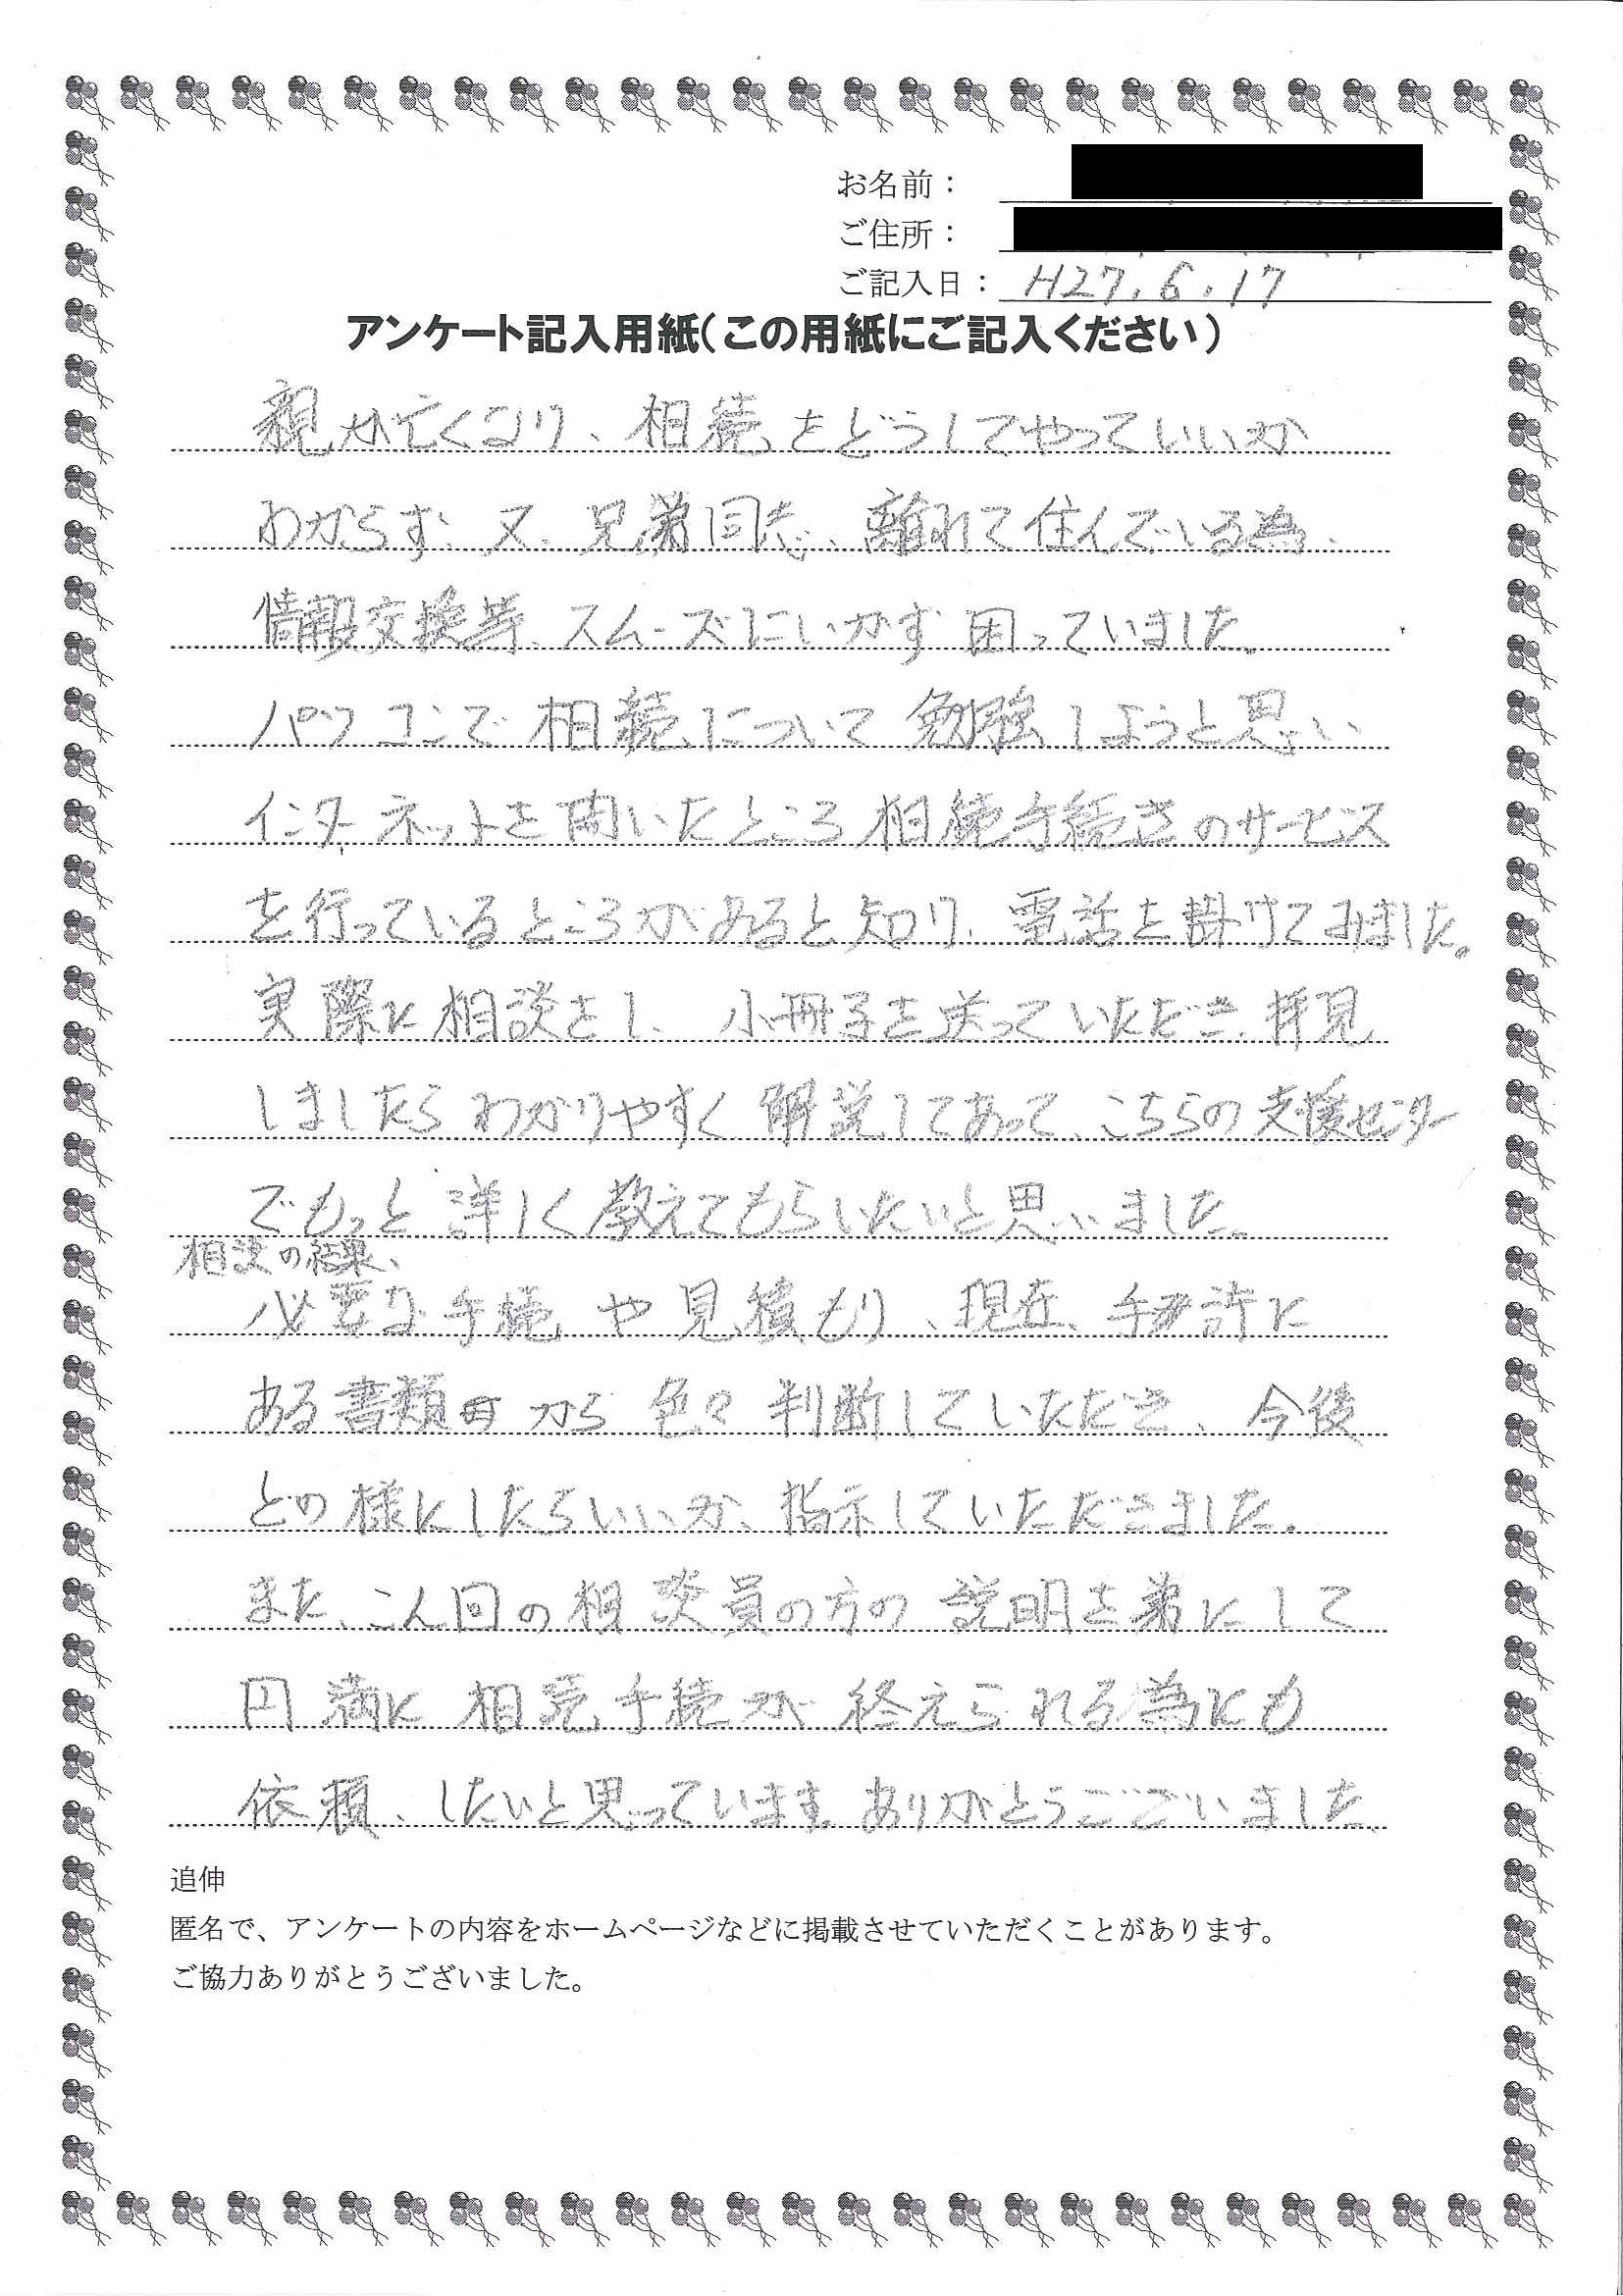 お名前：
ご住所：
ご記入日： H27.6.17
アンケート記入用紙(この用紙にご記入ください)
親が亡くなり、相続をどうしてやっていいか
わからず、又、兄弟同志、離れて住んでいる為、
情報交換等、スムーズにいかず困っていました。
パソコンで相続について勉強しようと思い
インターネットを開いたところ相続手続きのサービス
を行っているところがあると知り、電話を掛けてみました。
実際に相談をし、小冊子を送っていただき、拝見
しましたらわかりやすく解説してあって、こちらの支援センター
でもっと詳しく教えてもらいたいと思いました。
相談の結果、
必要な手続や見積もり、現在、手許に
ある書類 から色々判断していただき、今後
どの様にしたらいいか、指示していただきました。
また、こん回の相談員の方の説明を にして
円満に相続手続が終えられる為にも
依頼、したいと思っています。ありがとうございました
追伸
匿名で、アンケートの内容をホームページなどに掲載させていただくことがあります。
ご協力ありがとうございました。